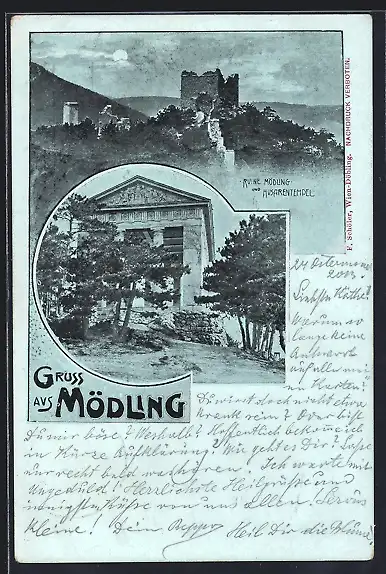 RUINE MÖDLING
UND HUSARENTEMPEL
F. Schöler, Wien-Döbling. NACHDRUCK VERBOTEN.
GRUSS
AUS MÖDLING
24 Ostermond
Liebste Käthe!
Warum so
lange keine
Antwort
auf alle
Karten?
Du wirst doch nicht etwa
krank sein? Oder bist
Du mir böse? Weshalb? Hoffentlich bekomme ich
in Kürze Aufklärung! Wie geht es Dir? Lasse
nur recht bald was hören. Ich warte mit
Ungeduld! Herrlichste Heilgrüße und
innigste Küsse von uns allen! Servus
Kleine! Dein Heil Dir die Deine!